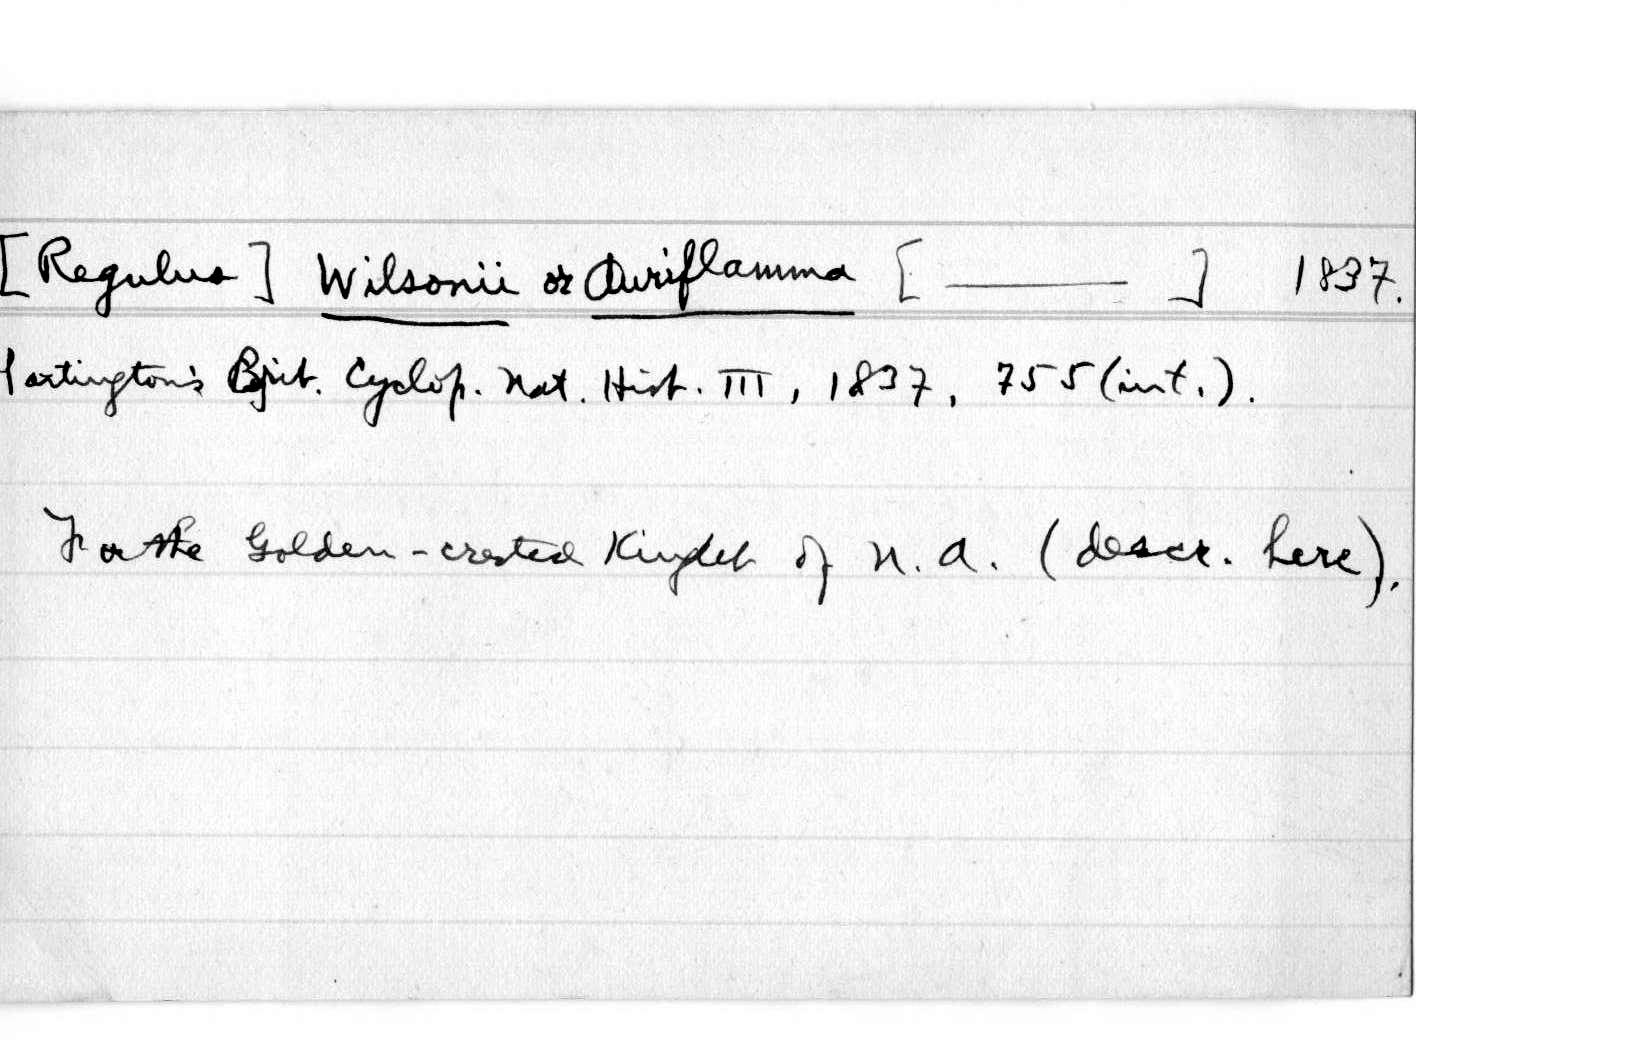 [Regulus] Wilsonii or Auriflamma [———] 1837.
Partington's Brit. Cyclop. Nat. Hist. III, 1837, 755 (int.).
For the Golden-crested Kinglet of N. A. (descr. here).